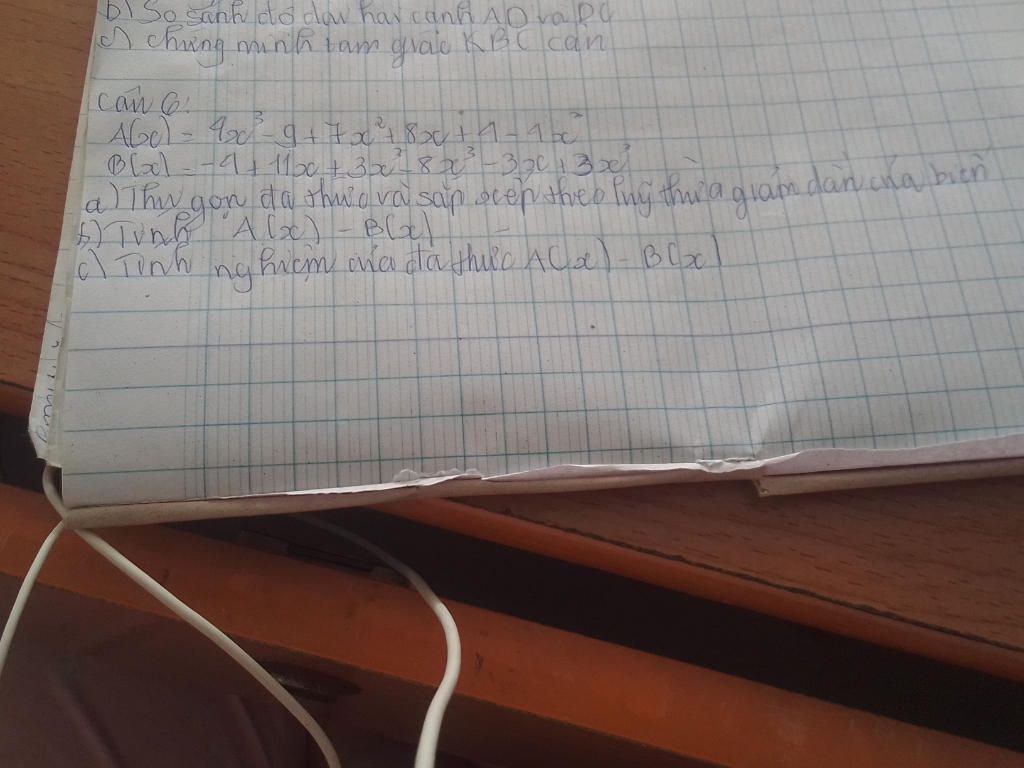 b) So sánh độ dài hai cạnh AD và DC
c) Chứng minh tam giác KBC cân
Câu 6:
A(x) = 4x³ - 9 + 7x² + 8x + 4 - 4x²
B(x) = -4 + 11x + 3x² - 8x³ - 3x + 3x³
a) Thu gọn đa thức và sắp xếp theo luỹ thừa giảm dần của biến
b) Tính A(x) - B(x)
c) Tính nghiệm của đa thức A(x) - B(x)